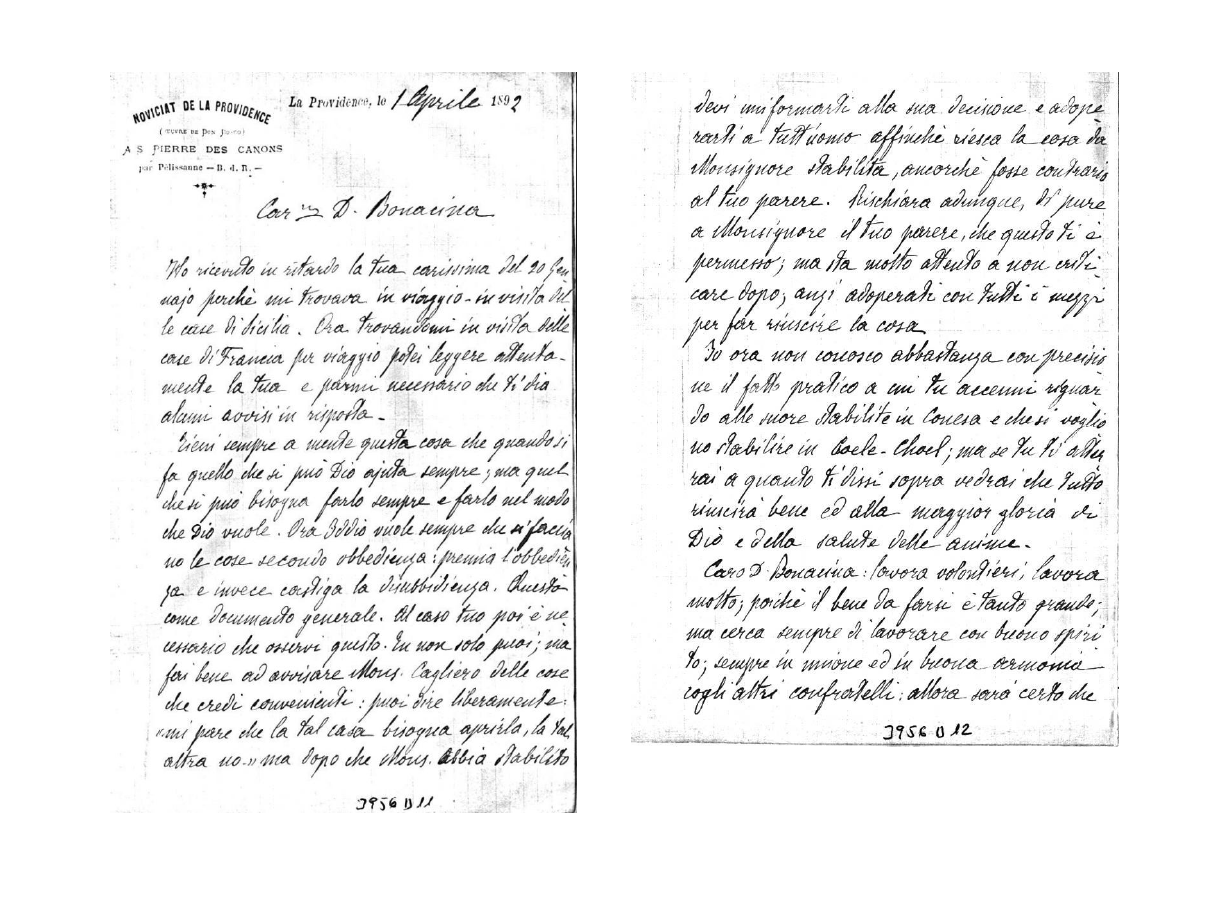 NOVICIAT DE LA PROVIDENCE
(ŒUVRE DE DON BOSCO)
A S PIERRE DES CANONS
par Pélissanne — B. d. R. —
La Providence, le 1 Aprile 1892
Car.mo D. Bonacina
Ho ricevuto in ritardo la tua carissima del 20 Gen
najo perchè mi trovava in viaggio - in visita del
le case di Sicilia. Ora trovandomi in visita delle
case di Francia per viaggio potei leggere attenta-
mente la tua e parmi necessario che ti dia
alcuni avvisi in risposta -
Tieni sempre a mente questa cosa che quando si
fa quello che si può Dio ajuta sempre; ma quel
che si può bisogna farlo sempre e farlo nel modo
che Dio vuole. Ora Iddio vuole sempre che si faccia
no le cose secondo obbedienza: premia l'obbedien
za e invece castiga la disubbidienza. Questo
come documento generale. Al caso tuo poi è ne
cessario che osservi questo. Tu non solo puoi; ma
fai bene ad avvisare Mons. Cagliero delle cose
che credi convenienti: puoi dire liberamente:
"mi pare che la tal casa bisogna aprirla, la tal
altra no-" ma dopo che Mons. abbia stabilito
3956 D 11
devi uniformarti alla sua decisione e adope
rarti a tutt'uomo affinchè riesca la cosa da
Monsignore stabilita, ancorchè fosse contrario
al tuo parere. Rischiara adunque, dì pure
a Monsignore il tuo parere, che questo ti è
permesso; ma sta molto attento a non criti
care dopo; anzi adoperati con tutti i mezzi
per far riuscire la cosa
Io ora non conosco abbastanza con precisio
ne il fatto pratico a cui tu accenni riguar
do alle suore stabilite in Conesa e che si voglio
no stabilire in Coele-Choel; ma se tu ti atter
rai a quanto ti dissi sopra vedrai che tutto
riuscirà bene ed alla maggior gloria di
Dio e della salute delle anime.
Caro D. Bonacina: lavora volontieri, lavora
molto; poichè il bene da farsi è tanto grande;
ma cerca sempre di lavorare con buono spiri
to; sempre in unione ed in buona armonia
cogli altri confratelli: allora sarà certo che
3956 D 12